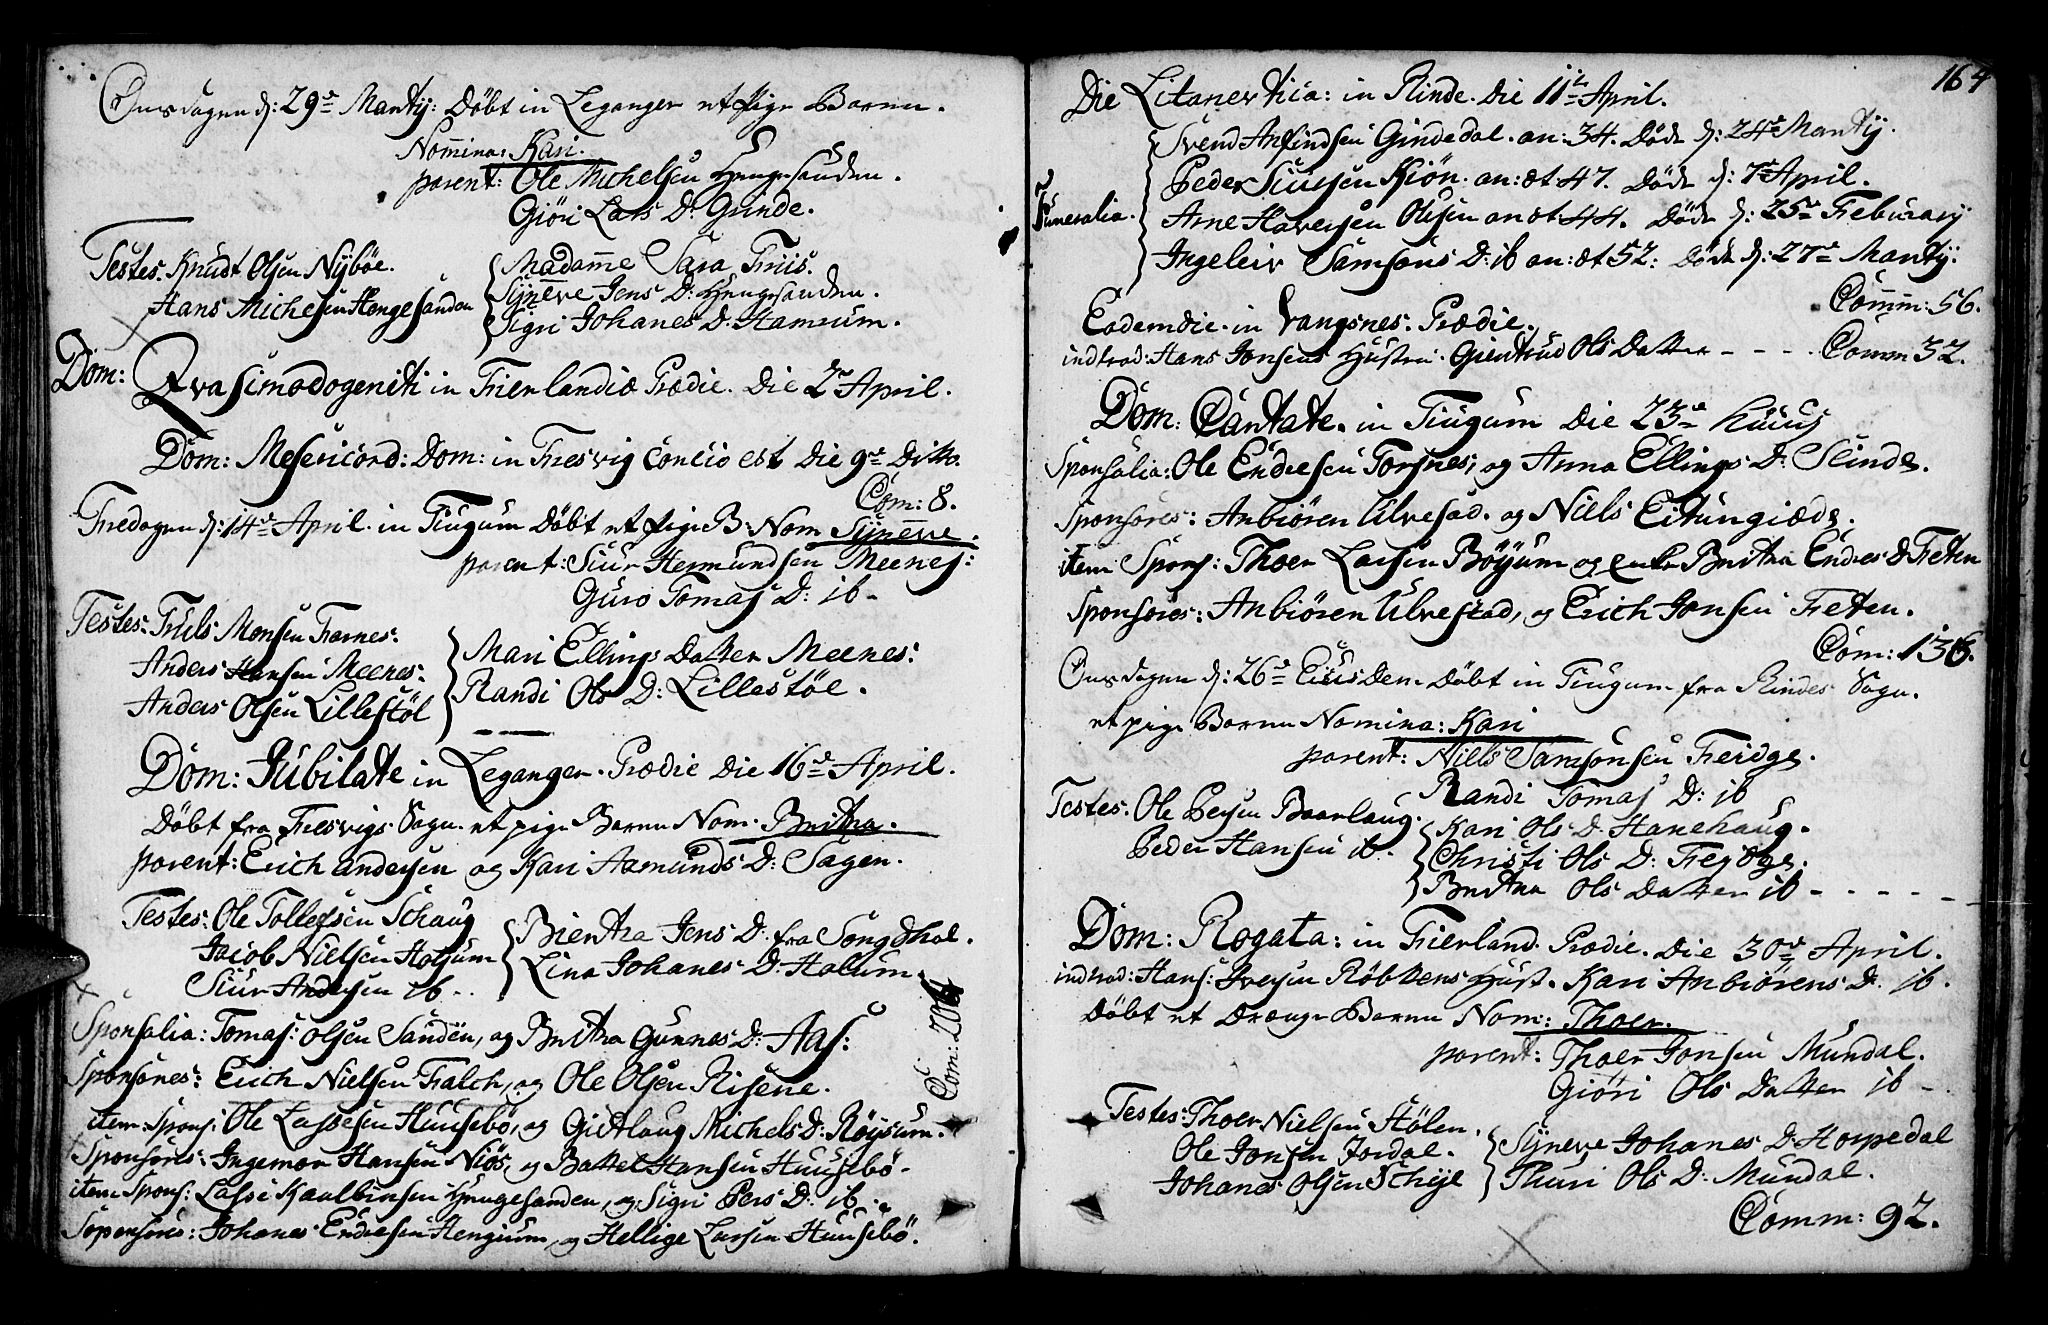 Onsdagen d: 29de Martij: Döbt in Leganger et pige Barn.
Nomina: Kari.
parent: Ole Michelsen Hengesanden.
Giöri Lars D: Grinde.
Testes: Knudt Olsen Nÿböe.
Hans Michesen Hengesanden
Madame Sara Friis.
Sÿneve Jens D: Hengesanden.
Sigri Johanes D. Hamrum.
Dom: Qvasimodogeniti in Fierlandiæ Prædic. Die 2de April.
Dom: Mesericord: Dom: in Fresvig concio est Die 9de Ditto.
Com: 8.
Fredagen d: 14de April. in Tiugum Döbt et pige B: Nom Sÿneve.
parent: Siur Hermundsen Meenes:
Guro Tomas D: ib -
Testes: Truls Monsen Farnes:
Anders Hansen Meenes:
Anders Olsen Lillestöl
Mari Ellings Datter Meenes:
Randi Ols D: Lillestöl.
Dom: Jubilate in Leganger. Prædic Die 16de April.
Döbt fra Fresvigs Sogn et pige Barn Nom: Britha.
parent: Erich andersen og Kari Aamunds D: Sagen.
Testes: Ole Tollefsen Schaug
Jacob Nielsen Holum
Siur Andersen ib..
Biertha Jens D: fra Songdhal.
Lina Johanes D: Holum.
Sponsalia: Tomas: olsen Sanden, og Britha Gunnes D: Aas:
Sponsores: Erich Nielsen Falch, og Ole Olsen Risene.
Com: 204
item: Spons: Ole Lassesen Huusebö, og Giertlaug Michels D: Röysum.
Sponsores: Ingemor Hansen Niös, og Battel Hansen Huusebö.
item Spons: Lasse Kaulbinsen Hengesanden, og Sigri Pers D: ib.
Sopensores: Johanes Endresen Hengium, og Hellige Larsen Huusebö.
164
Die Litanevtica: in Rinde. Die 11te April.
Funeralia.
Svend Anfindsen Gindedal. an: 34. Döde d: 24de Martij.
Peder Siursen Kiön. an: æt 47. Döde d: 7de April.
Arne Haversen Olsen an æt: 44. Döde d: 25de Feburarj
Ingeleiv Samsons D: ib an: æt 52: Döde d: 27de Martij:
Comm: 56.
Eodemdie. in Vangsnes: Prædic.
indrod: Hans Jonsens Hustru. Giertrud Ols Datter - - - . Comm 32.
Dom: Cantate. in Tiugum Die 23de Huus
Sponsalia: Ole Endresen Torsnes, og Anna Ellings D: Slinde.
Sponsores: Anbiören Ulvestad. og Niels Eitungiæde.
item Spons: Thoer Larsen Böÿum og Britha Endres D Feten
Sponsores: Anbiören Ulvestad, og Erich Jonsen Feten.
Com: 136.
Onsdagen d: 26de Eiusdem Döbt in Tiugum fra Rindes Sogn.
et pige Barn Nomina: Kari
parent: Niels Samsonsen Feidge.
Randi Tomas D: ib
Testes: Ole Persen Baarlaug.
Peder Hansen ib.
Kari Ols D. Hanehaug.
Christi Ols D: Fejdge.
Britha Ols Datter ib - - - -
Dom: Rogata: in Fierland. Prædic. Die 30de April.
indrod: Hans: Iversen Röbkens Hust. Kari Anbiörens D. ib.
Döbt et Drænge Barn Nom: Thoer.
parent: Thoer Jonsen Mundal.
Giöri Ols Datter ib -
Testes: Thoer Nielsen Stölen.
Ole Jonsen Jordal.
Johanes Olsen Scheje
Sÿneve Johanes D. Horpedal
Thuri Ols D: Mundal.
Comm: 92.